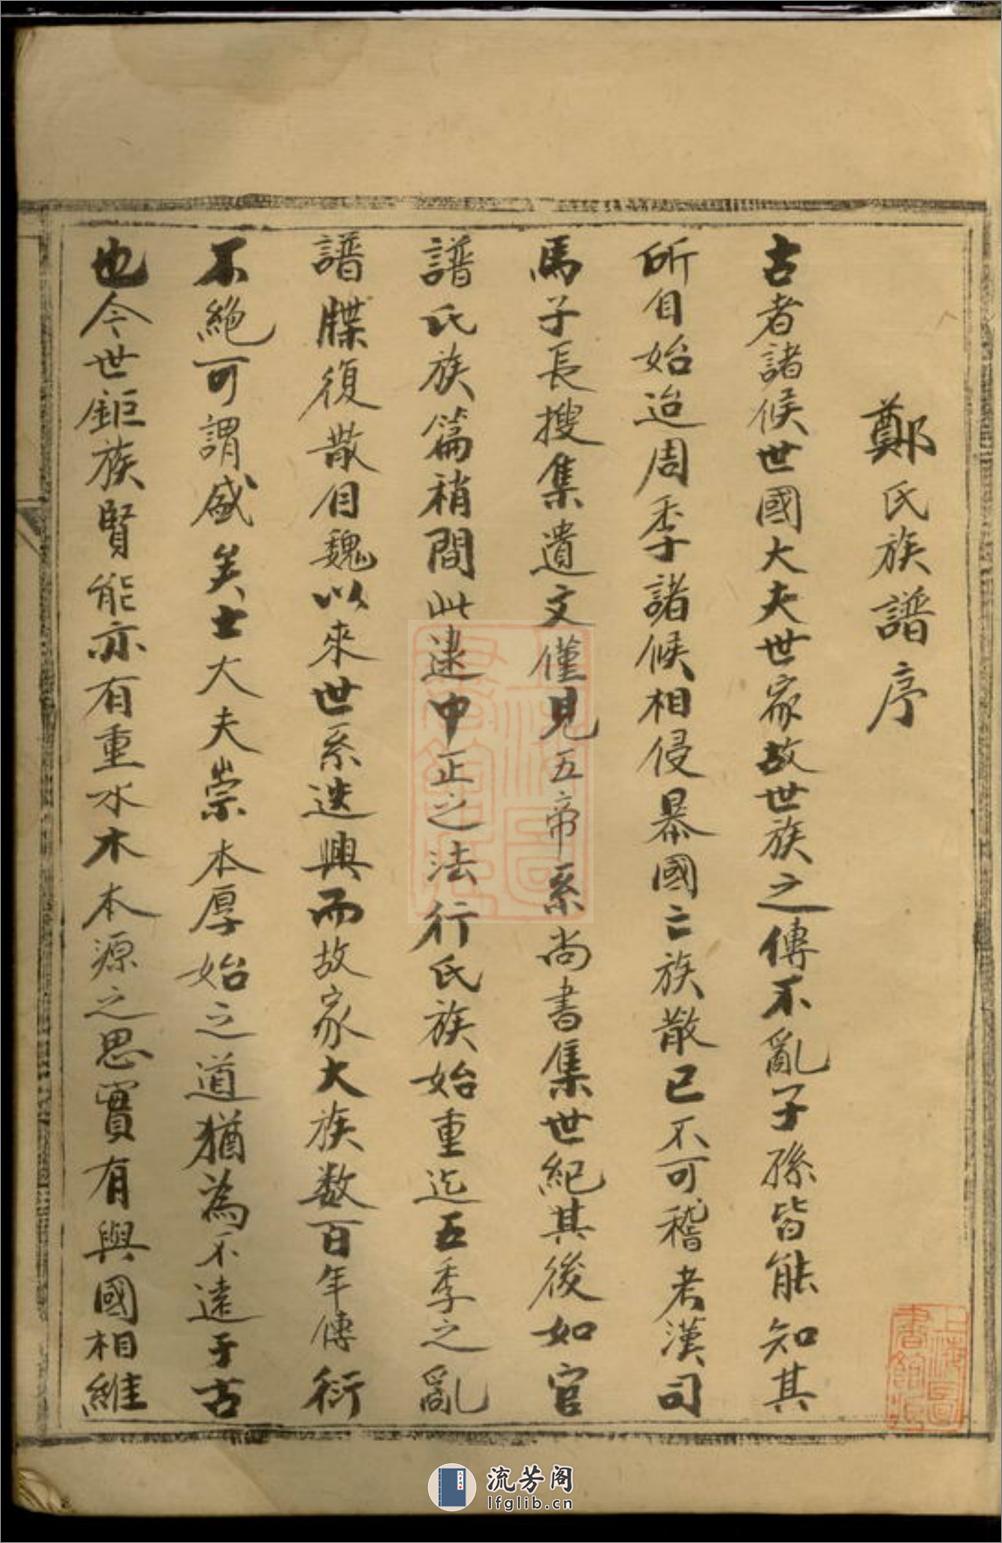 鄭氏族譜序
古者諸侯世國大夫世家故世族之傳不亂子孫皆能知其
所自始迨周季諸侯相侵暴國亡族散已不可稽考漢司
馬子長搜集遺文僅見五帝系尚書集世紀其後如官
譜氏族篇稍間此逮中正之法行氏族始重迄五季之亂
譜牒復散自魏以來世系迭興而故家大族数百年傳衍
不絕可謂盛矣士大夫崇本厚始之道猶為不遠于古
也今世鉅族賢能亦有重水木本源之思實有與國相維
上海圖書館藏
上海圖書館藏
流芳阁
lfglib.cn